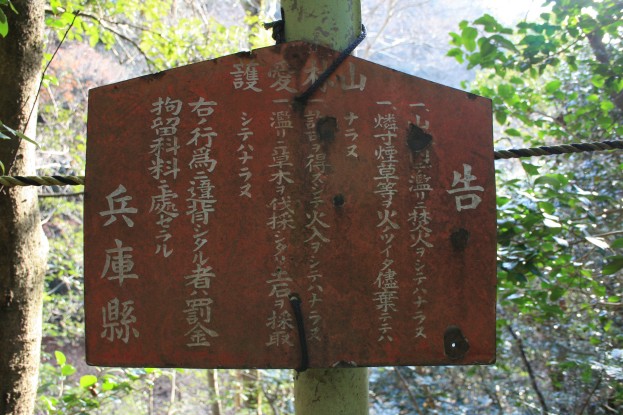 山林愛護
告
一、山 濫リニ焚火ヲシテハナラス
一、燐寸煙草等ヲ火ノツイタ儘葉テテハ
ナラス
一、 ヲ得ズシテ火入ヲシテハナラス
一、濫リニ草木ヲ伐採シタリ土石ヲ採取
シテハナラス
右ノ行為ニ違背シタル者ハ罰金
拘留科料ニ處セラル
兵庫縣